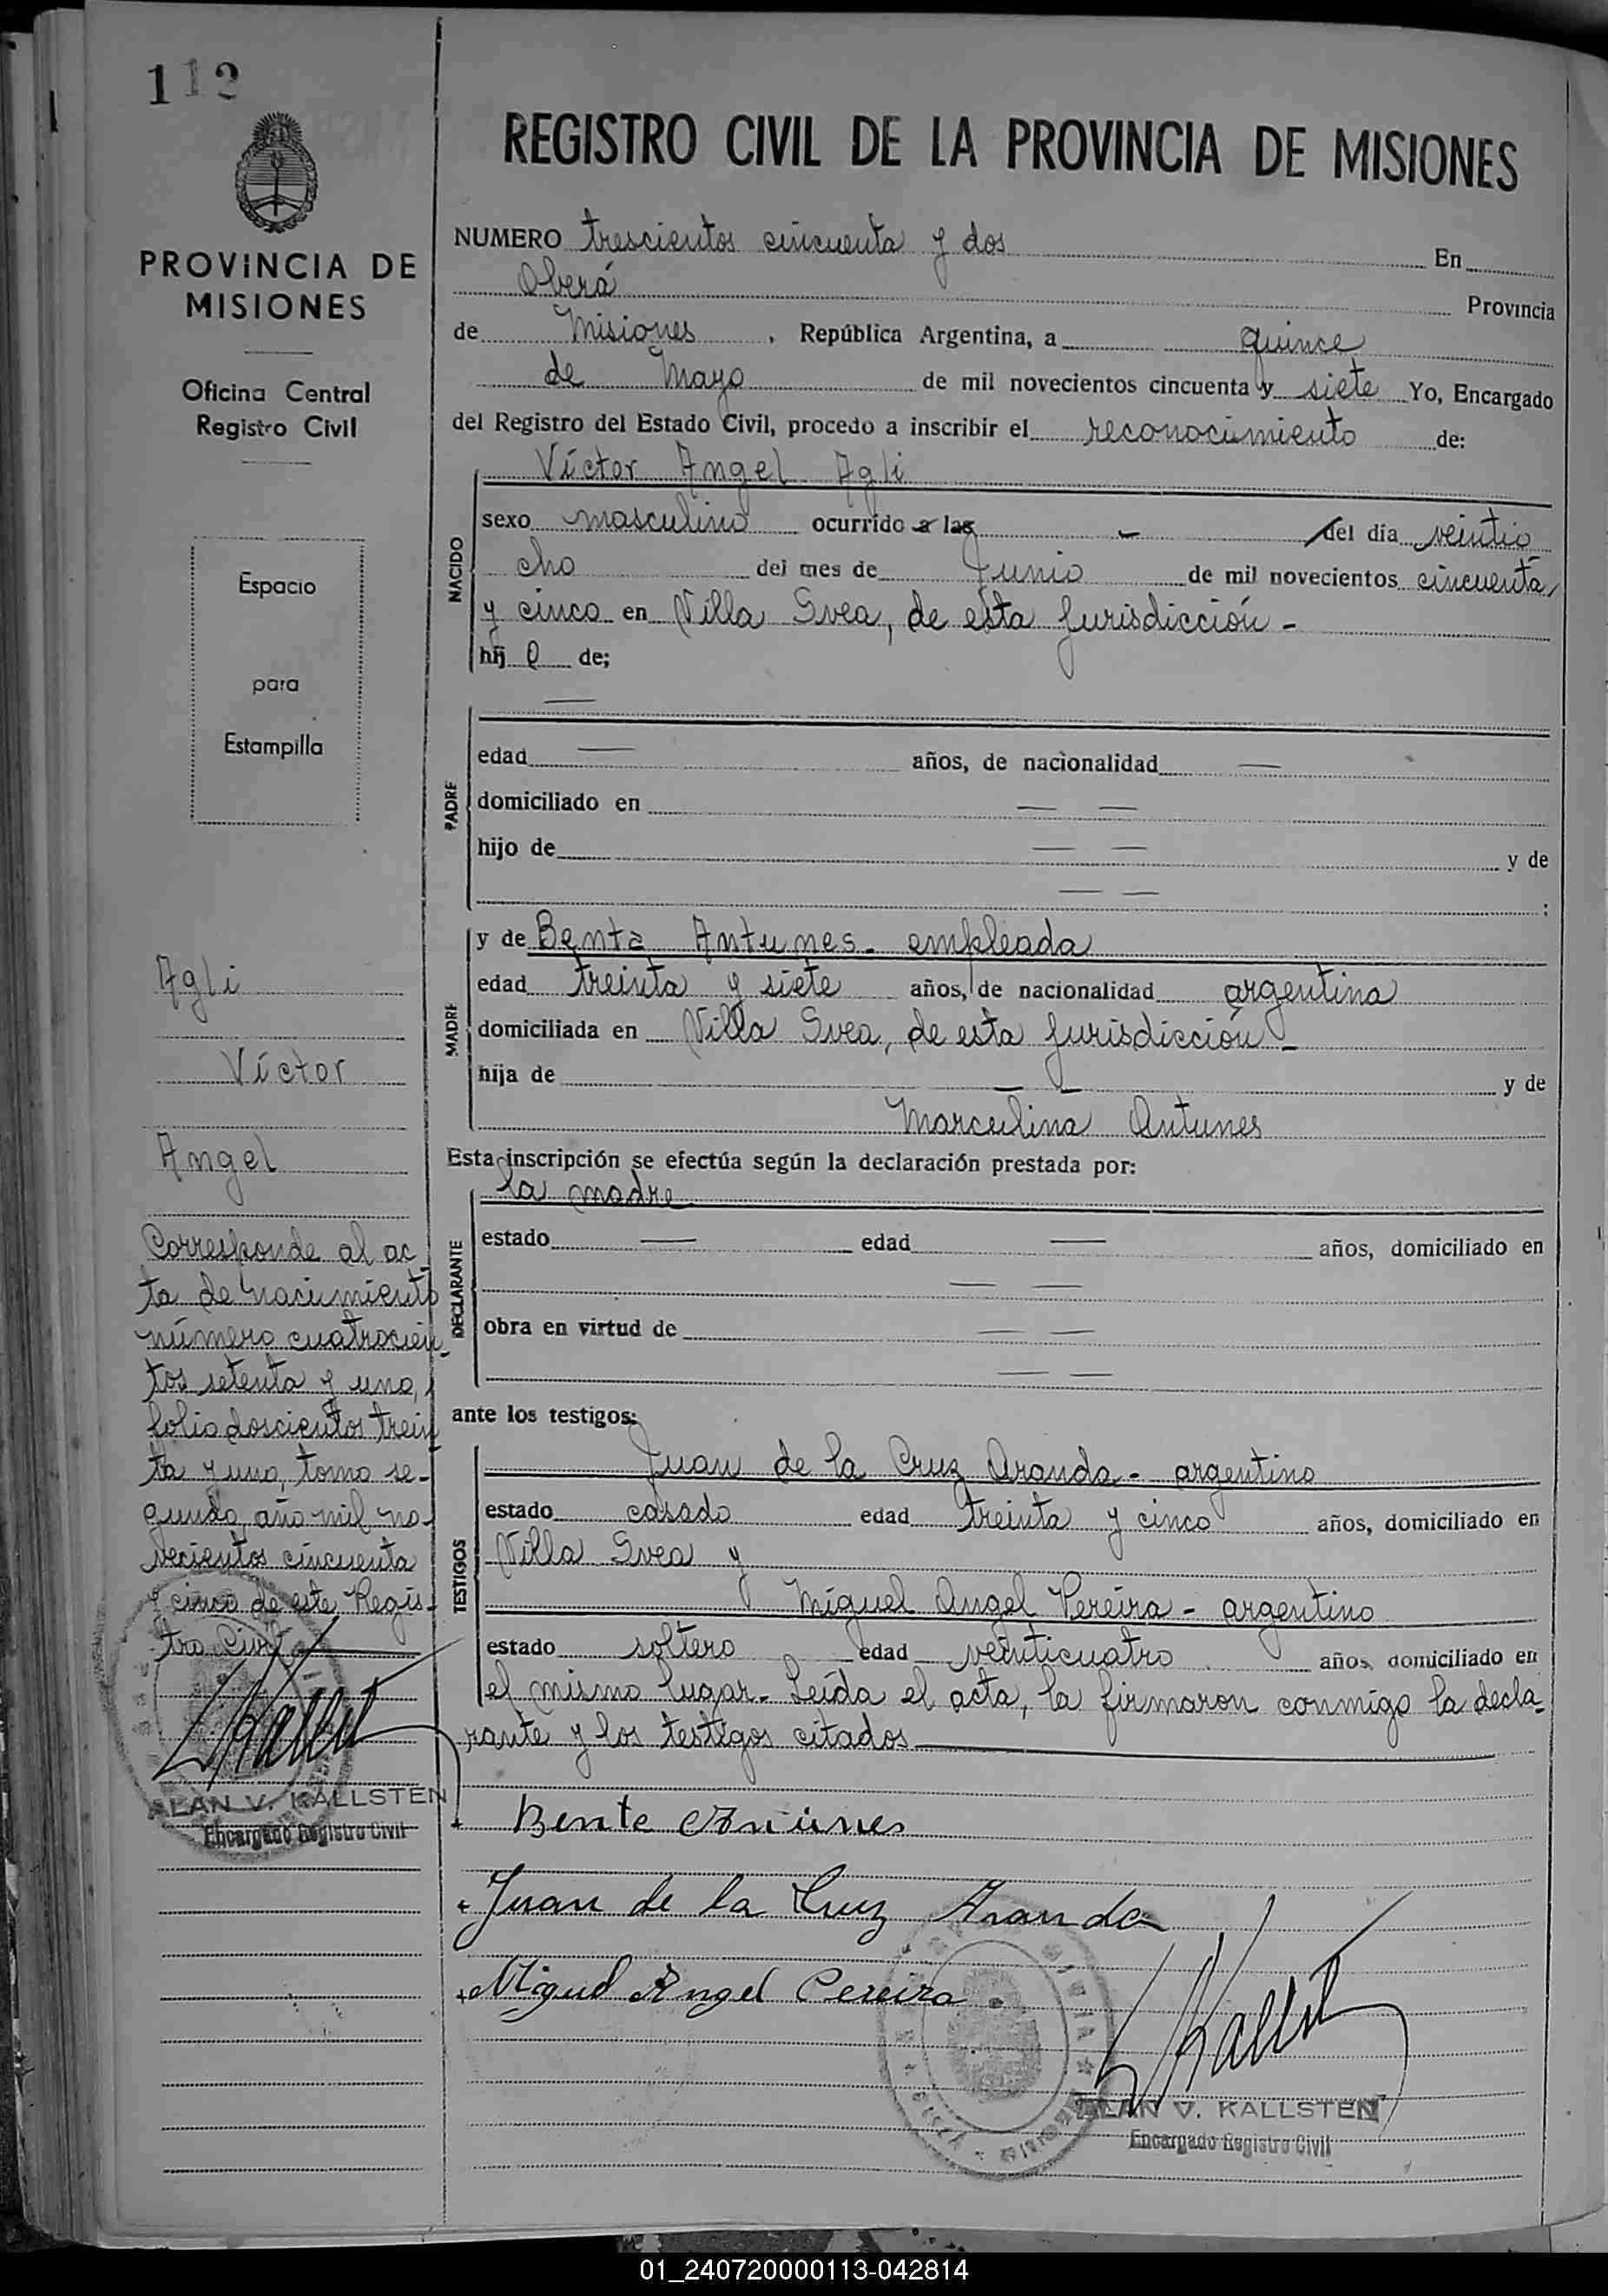 112
PROVINCIA DE
MISIONES
Oficina Central
Registro Civil
Espacio
para
Estampilla
Agli
Víctor
Angel
Corresponde al ac-
ta de nacimiento
número cuatrocien-
tos setenta y uno,
folio doscientos trein
ta y uno, tomo se-
gundo, año mil no-
vecientos cincuenta
y cinco de este Regis-
tro Civil
ALAN V. KALLSTEN
Encargado Registro Civil
REGISTRO CIVIL DE LA PROVINCIA DE MISIONES
NUMERO trescientos cincuenta y dos En
Oberá Provincia
de Misiones, República Argentina, a quince
de Mayo de mil novecientos cincuenta y siete Yo, Encargado
del Registro del Estado Civil, procedo a inscribir el reconocimiento de:
NACIDO
Víctor Angel Agli
sexo masculino ocurrido a las - del día veintio-
cho del mes de Junio de mil novecientos cincuenta
y cinco en Villa Svea, de esta jurisdicción -
hij o de;
PADRE
—
edad — años, de nacionalidad —
domiciliado en — —
hijo de — — y de
— — ;
MADRE
y de Benta Antunes - empleada
edad treinta y siete años, de nacionalidad argentina
domiciliada en Villa Svea, de esta jurisdicción -
hija de — — y de
Marculina Antunes
Esta inscripción se efectúa según la declaración prestada por:
DECLARANTE
la madre
estado — edad — años, domiciliado en
— —
obra en virtud de — —
— —
ante los testigos:
TESTIGOS
Juan de la Cruz Aranda - argentino
estado casado edad treinta y cinco años, domiciliado en
Villa Svea y
Miguel Angel Pereira - argentino
estado soltero edad veinticuatro años domiciliado en
el mismo lugar - Leída el acta, la firmaron conmigo la decla-
rante y los testigos citados
Bente Antunes
Juan de la Cruz Aranda
Miguel Angel Pereira
ALAN V. KALLSTEN
Encargado Registro Civil
01_240720000113-042814